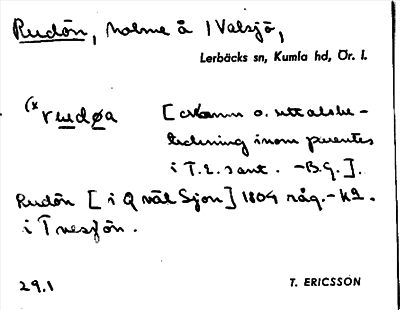 Rudön, holme å i Valsjö,
Lerbäcks sn, Kumla hd, Ör. l.
(* rudøa [Namn o. uttalsbe-
teckning inom parentes
i T.E.s ant. -B.G.].
Rudön [i Qväl Sjon] 1804 råg.-k2.
i Tvesjön.
29.1 T. ERICSSON